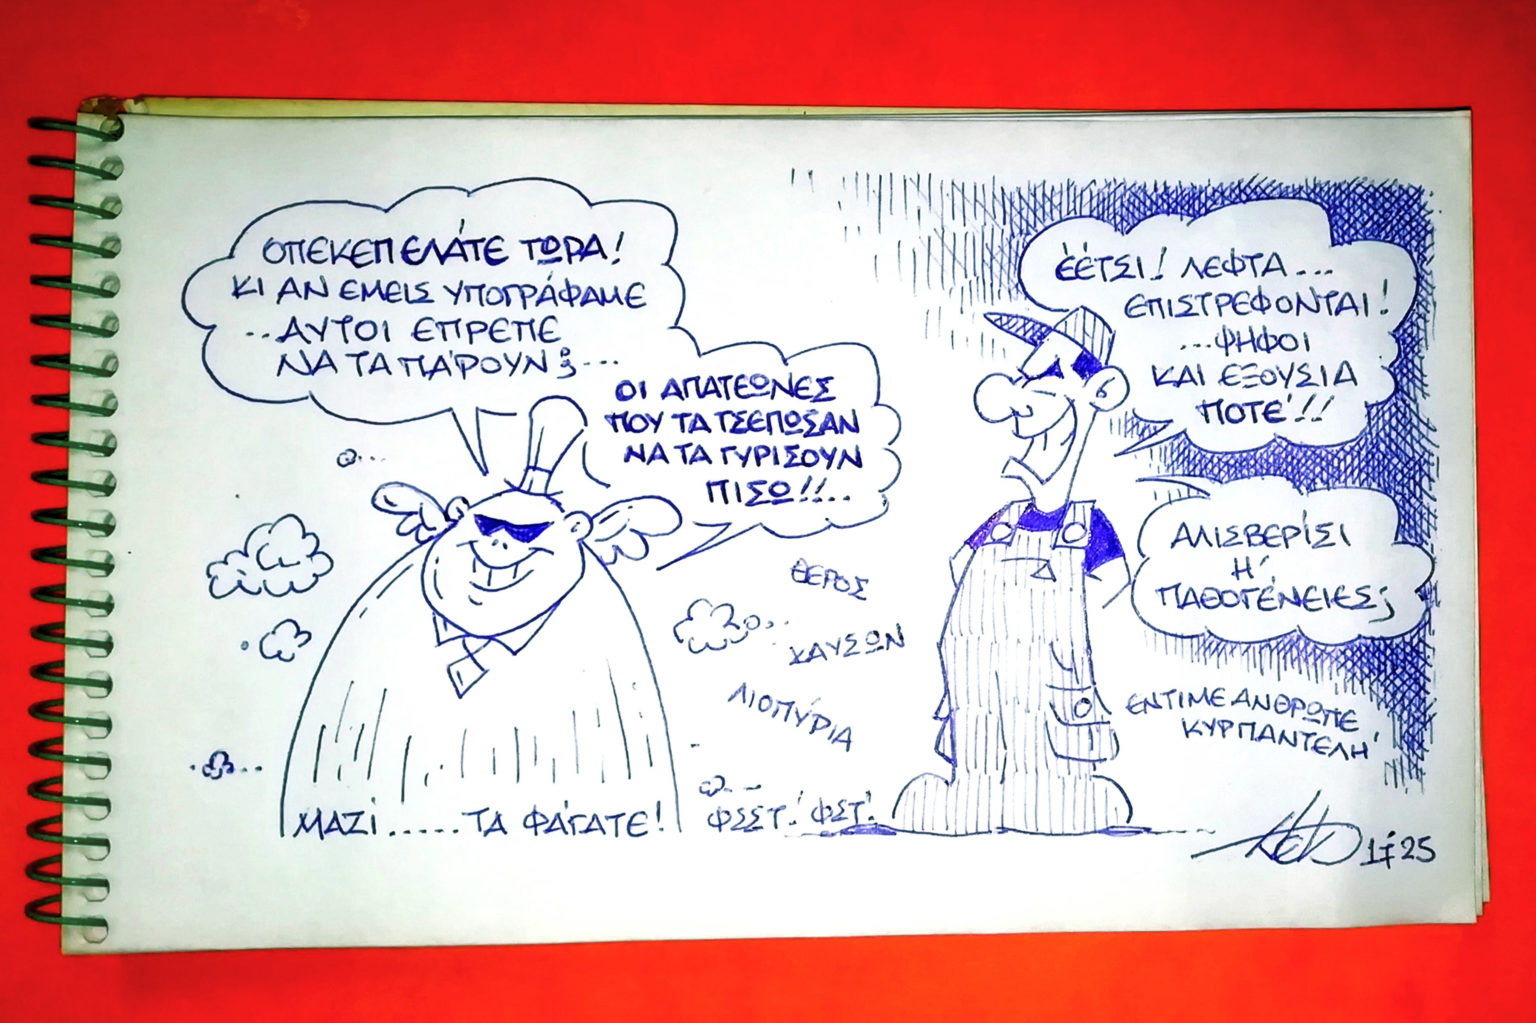 ΟΠΕΚΕΠΕΛΑΤΕ ΤΩΡΑ!
ΚΙ ΑΝ ΕΜΕΙΣ ΥΠΟΓΡΑΦΑΜΕ
..ΑΥΤΟΙ ΕΠΡΕΠΕ
ΝΑ ΤΑ ΠΑΡΟΥΝ;...
ΟΙ ΑΠΑΤΕΩΝΕΣ
ΠΟΥ ΤΑ ΤΣΕΠΩΣΑΝ
ΝΑ ΤΑ ΓΥΡΙΣΟΥΝ
ΠΙΣΩ!!..
ΈΈΤΣΙ! ΛΕΦΤΑ...
ΕΠΙΣΤΡΕΦΟΝΤΑΙ!
...ΨΗΦΟΙ
ΚΑΙ ΕΞΟΥΣΙΑ
ΠΟΤΕ!!
ΑΛΙΣΒΕΡΙΣΙ
Η΄
ΠΑΘΟΓΕΝΕΙΕΣ;
ΘΕΡΟΣ
ΚΑΥΣΩΝ
ΛΙΟΠΥΡΙΑ
ΕΝΤΙΜΕ ΑΝΘΡΩΠΕ
ΚΥΡΠΑΝΤΕΛΗ
ΜΑΖΙ.....ΤΑ ΦΑΓΑΤΕ!
ΦΣΣΤ! ΦΣΤ!
25